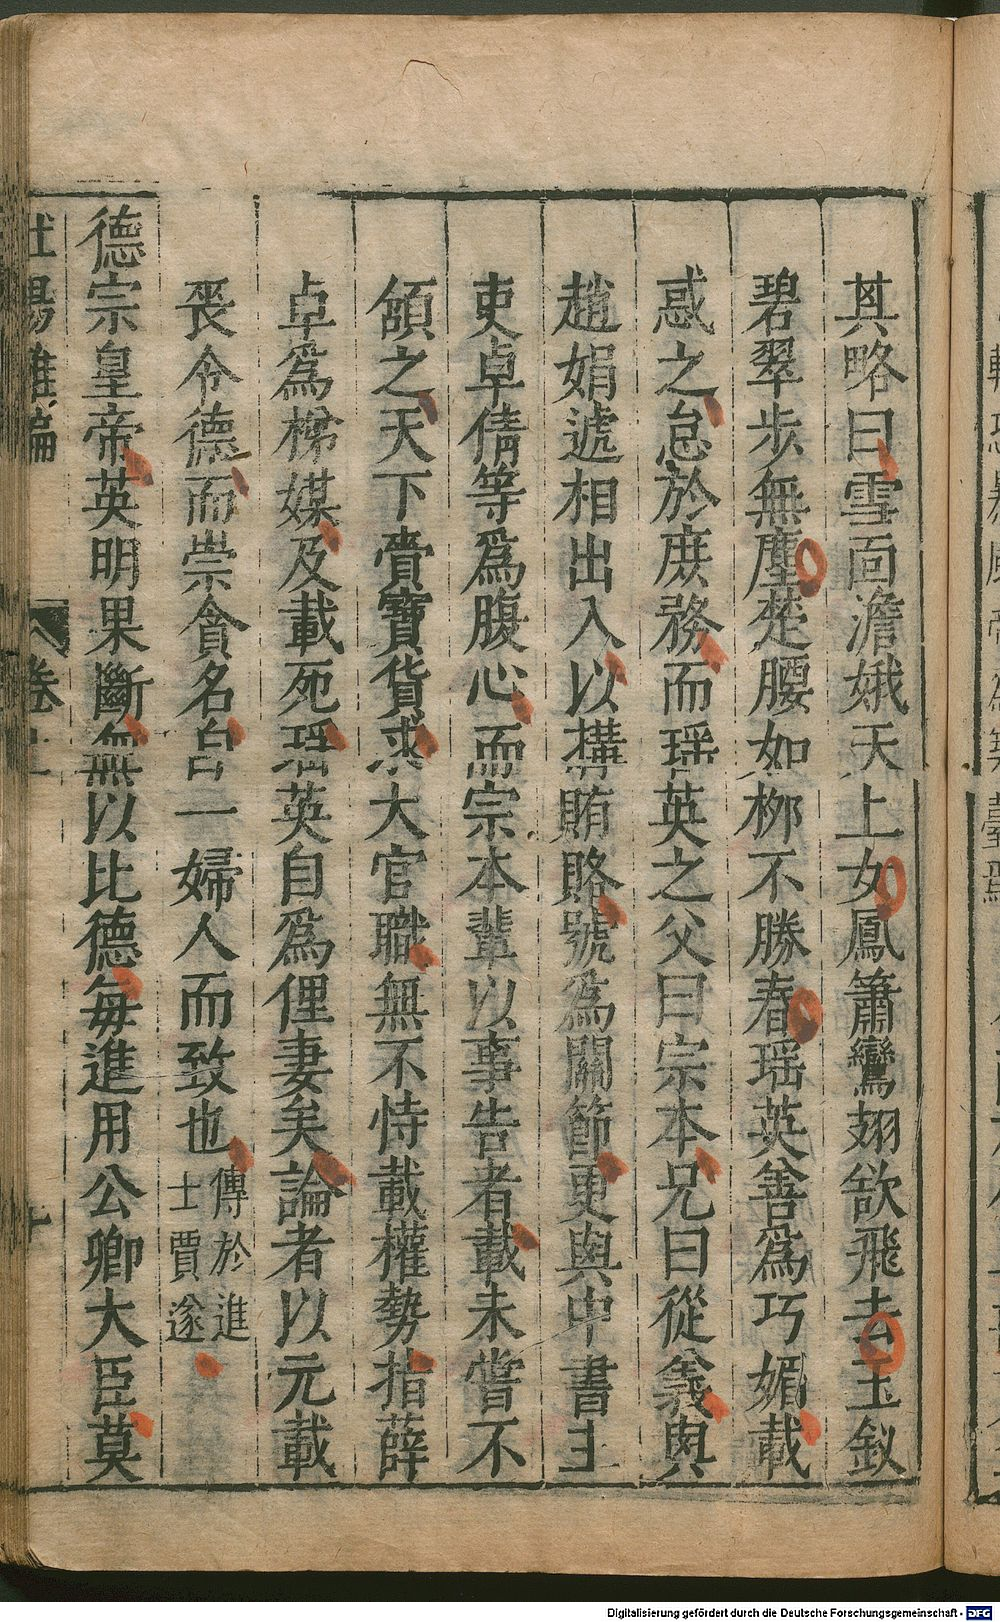 其略曰雪面澹娥天上女鳳簫鸞翅欲飛去玉釵
碧翠步無塵楚腰如栁不勝春瑶英善爲巧媚載
惑之怠於庶務而瑶英之父曰宗本兄曰從義與
趙娟遞相出入以搆賄賂號爲關節更與中書主
吏卓倩等爲腹心而宗本輩以事告者載未嘗不
頷之天下賫寶貨求大官職無不恃載權勢指薛
卓爲梯媒及載死瑶英自爲俚妻矣論者以元載
喪令德而崇貪名自一婦人而致也
傳於進
士賈遂
德宗皇帝英明果斷無以比德每進用公卿大臣莫
杜陽雜編
卷上
十
Digitalisierung gefördert durch die Deutsche Forschungsgemeinschaft - DFG